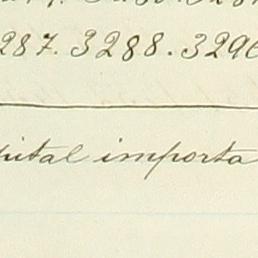 287. 3288. 3296
pital importa